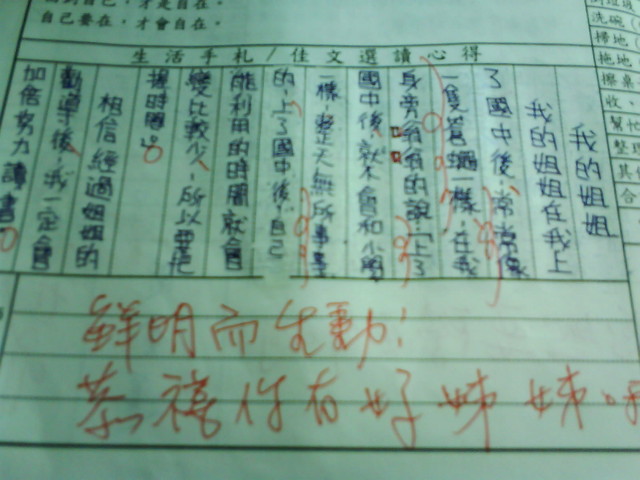 自己要在，才會自在。
生活手札/佳文選讀心得
我的姐姐
我的姐姐在我上
了國中後，常常像
一隻蒼蠅一樣，在我
身旁嗡嗡的說「上了
國中後，就不會和小學
一樣，整天無所事事
的，上了國中後，自己
能利用的時間就會
變比較少，所以要把
握時間。」
相信經過姐姐的
勸導後，我一定會
加倍努力讀書。
鮮明而生動！
恭禧你有好姊姊呀
洗碗
掃地
拖地
擦桌
收、
幫忙
整理
其他
合